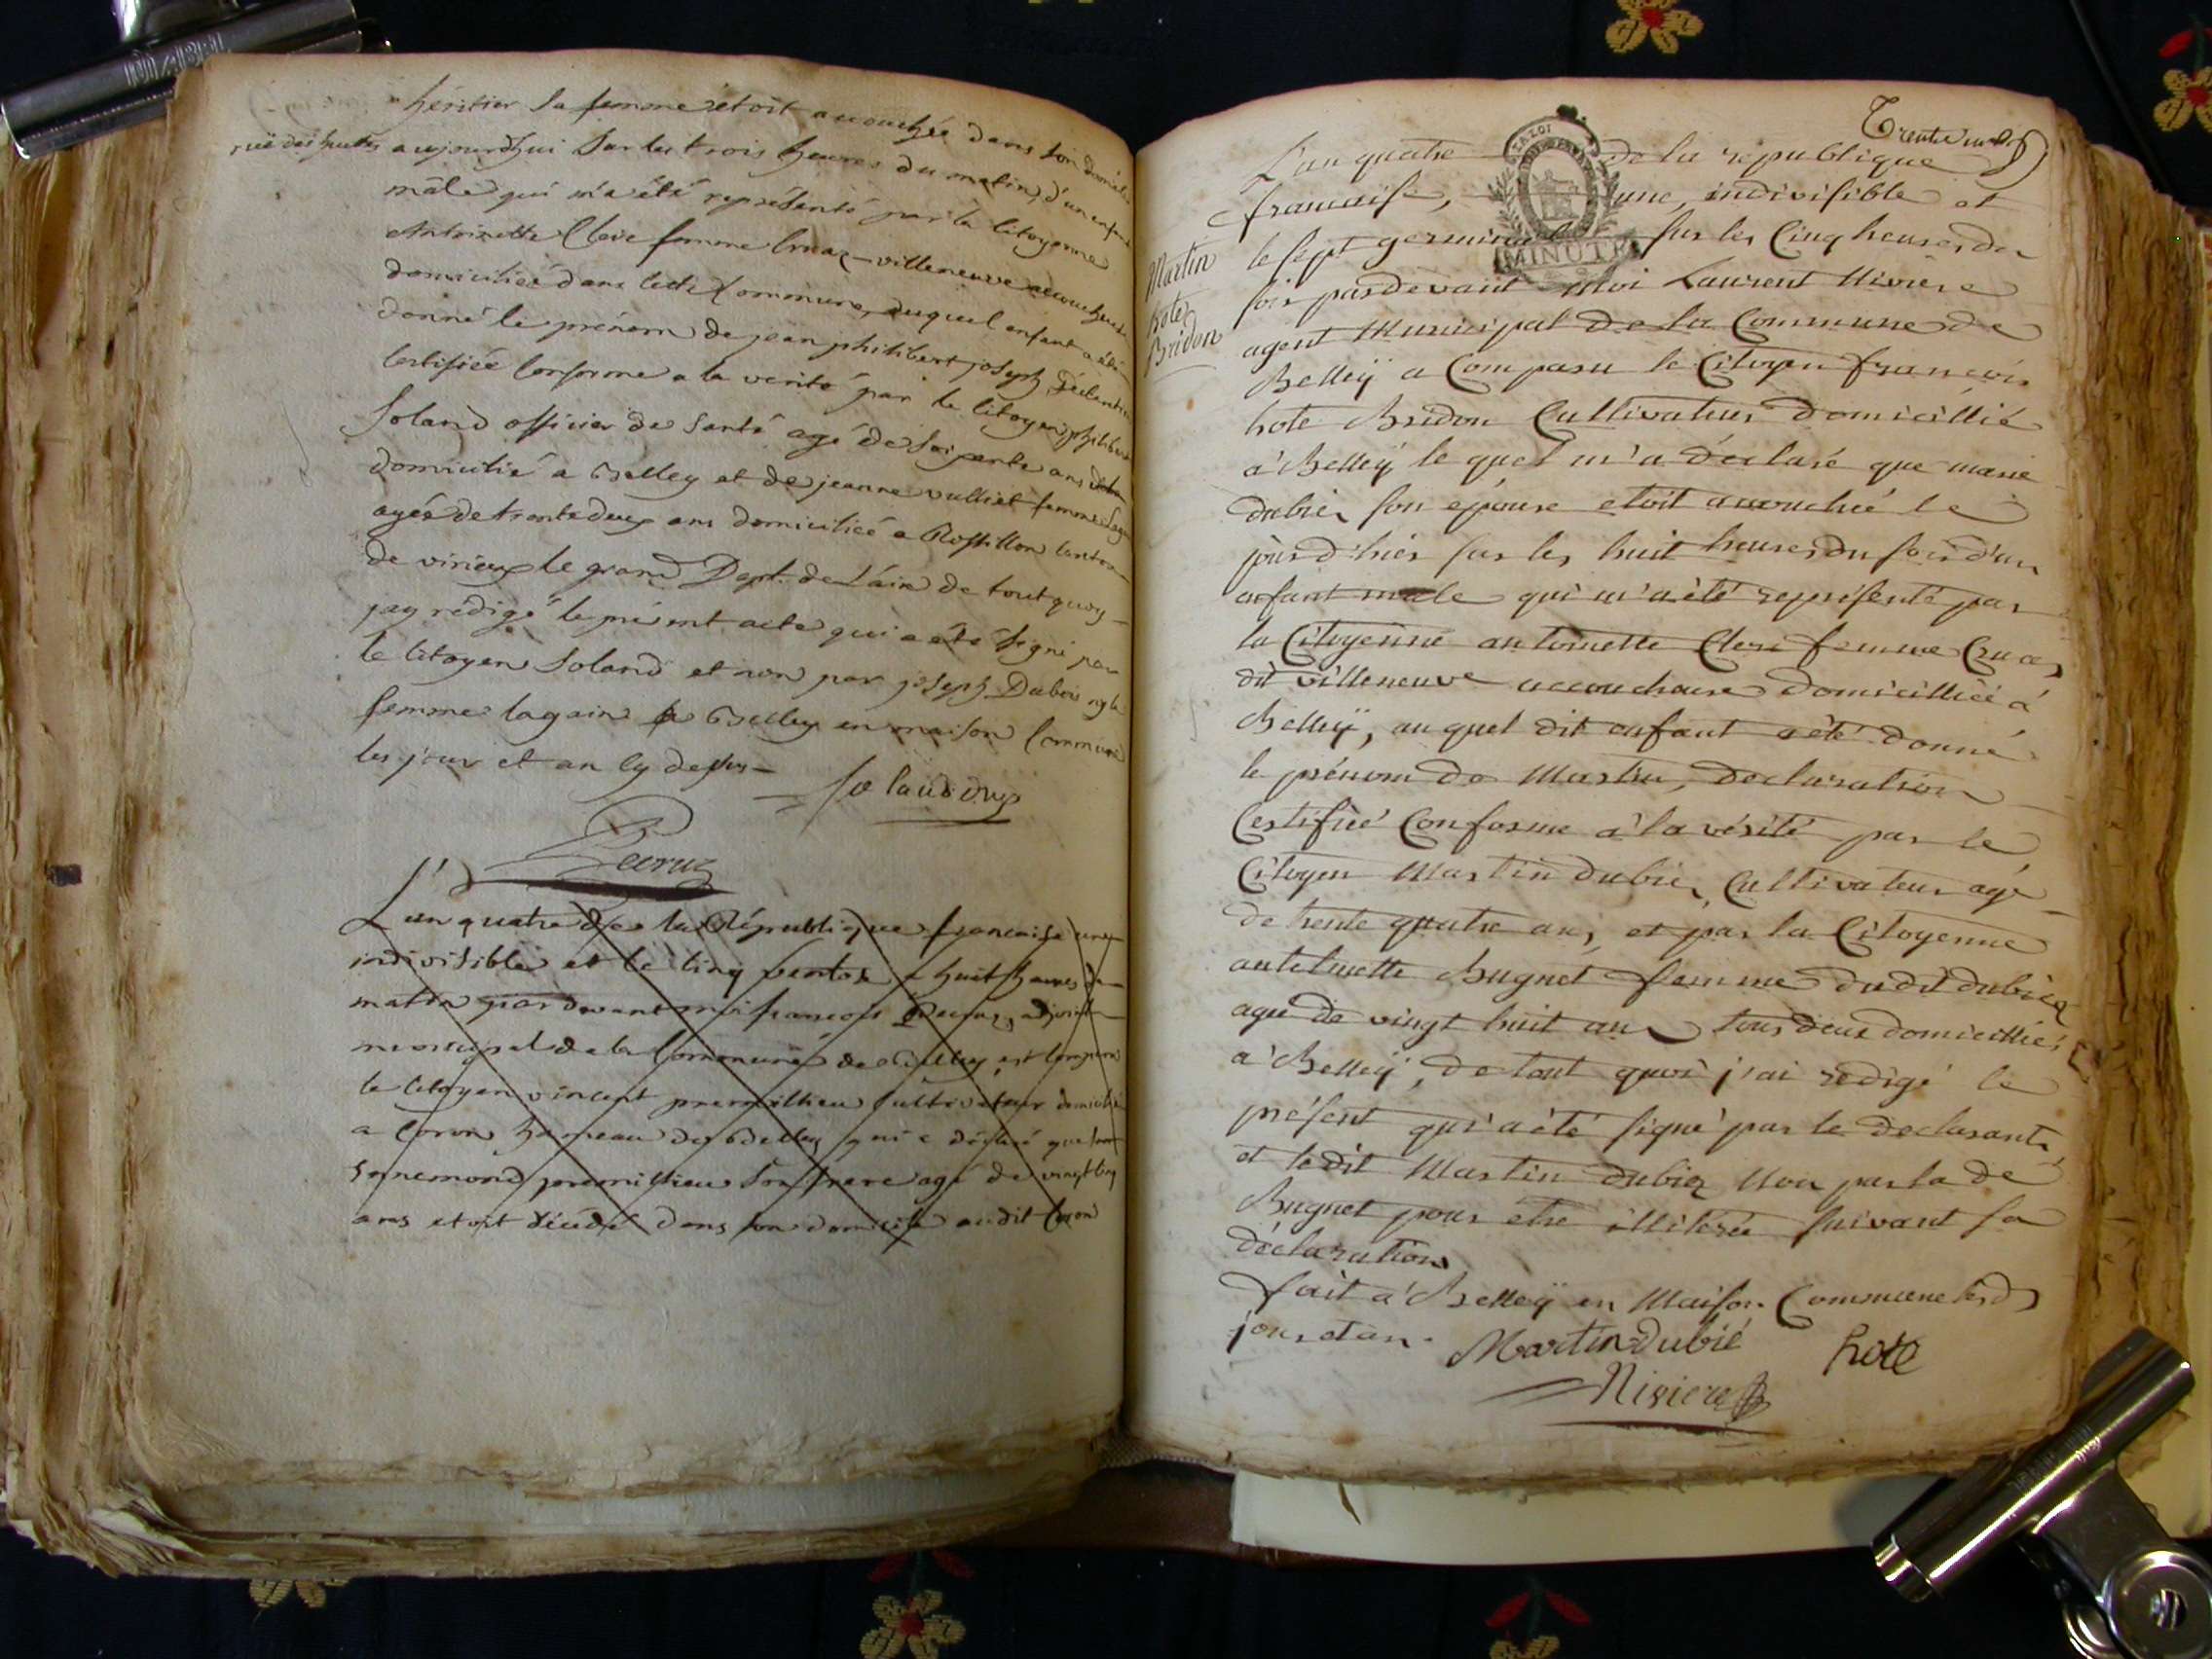 héritier sa femme etoit accouchée dans son domicile
rüe des huttes aujourdhui sur les trois heures du matin, d'un enfant
mâle qui m'a été représenté par la Citoyenne
Antoinette Clere femme Cruaz-villeneuve accoucheuse
domiciliée dans cette Commune, auquel enfant a été
donné le prénom de jean philibert joseph, Déclaration
Certifiée Conforme a la verité par le Citoyen philibert
Soland officier de Santé agé de Soixante ans
domicilié a Belley et de jeanne vulliet femme
agée de trente deux ans domiciliée a Rossillon Canton
de virieux le grand Dept. de L'ain de tout quoy
jay rédigé le présent acte qui a été Signé par
le Citoyen Soland et non par joseph Dubois ny la
femme lagain a Belley en maison Commune
les jour et an cy dessus
Solaud
Decruz
L'an quatre de la République francaise une
indivisible et le cinq ventose a huit heures du
matin par devant moi francois Decruz adjoint
municipal de la Commune de Belley est Comparu
le Citoyen vincent premillieu Cultivateur domicilié
a Coron hameau de Belley qui a déclaré que
premillieu Son frere agé de vingt cinq
ans etoit décédé dans son domicile audit Coron
Trente
L'an quatre de la république
francaise, une, indivisible et
LA LOI
MINUTE
Martin
hote
Bridon
le sept germinal sur les Cinq heures du
soir pardevant Moi Laurent Riviere
agent Municipal de la Commune de
Belleÿ a Comparu le Citoyen francois
hote Bridon Cultivateur domicillié
à Belleÿ le quel m'a déclaré que marie
dubiez son epouse etoit accouchée le
jour d'hier sur les huit heures du soir d'un
enfant male qui m'a été représenté par
la Citoyenne antoinette Clere femme Cruaz
dit villeneuve accoucheuse domicilliée à
Belleÿ, au quel dit enfant a été donné
le prénom de Martin, declaration
Certifiée Conforme à la vérité par le
Citoyen Martin dubiez Cultivateur agé
de trente quatre ans, et par la Citoyenne
antelmette Bugnet femme dudit dubiez
agée de vingt huit ans tous deux domicilliés
à Belleÿ, de tout quoi j'ai redigé le
présent qui a été signé par le declarant
et le dit Martin dubiez Non par la dé
Bugnet pour etre illiterée suivant sa
déclaration
fait à Belleÿ en Maison Commune lesds
jour et an.
Martin Dubié
hote
Riviere